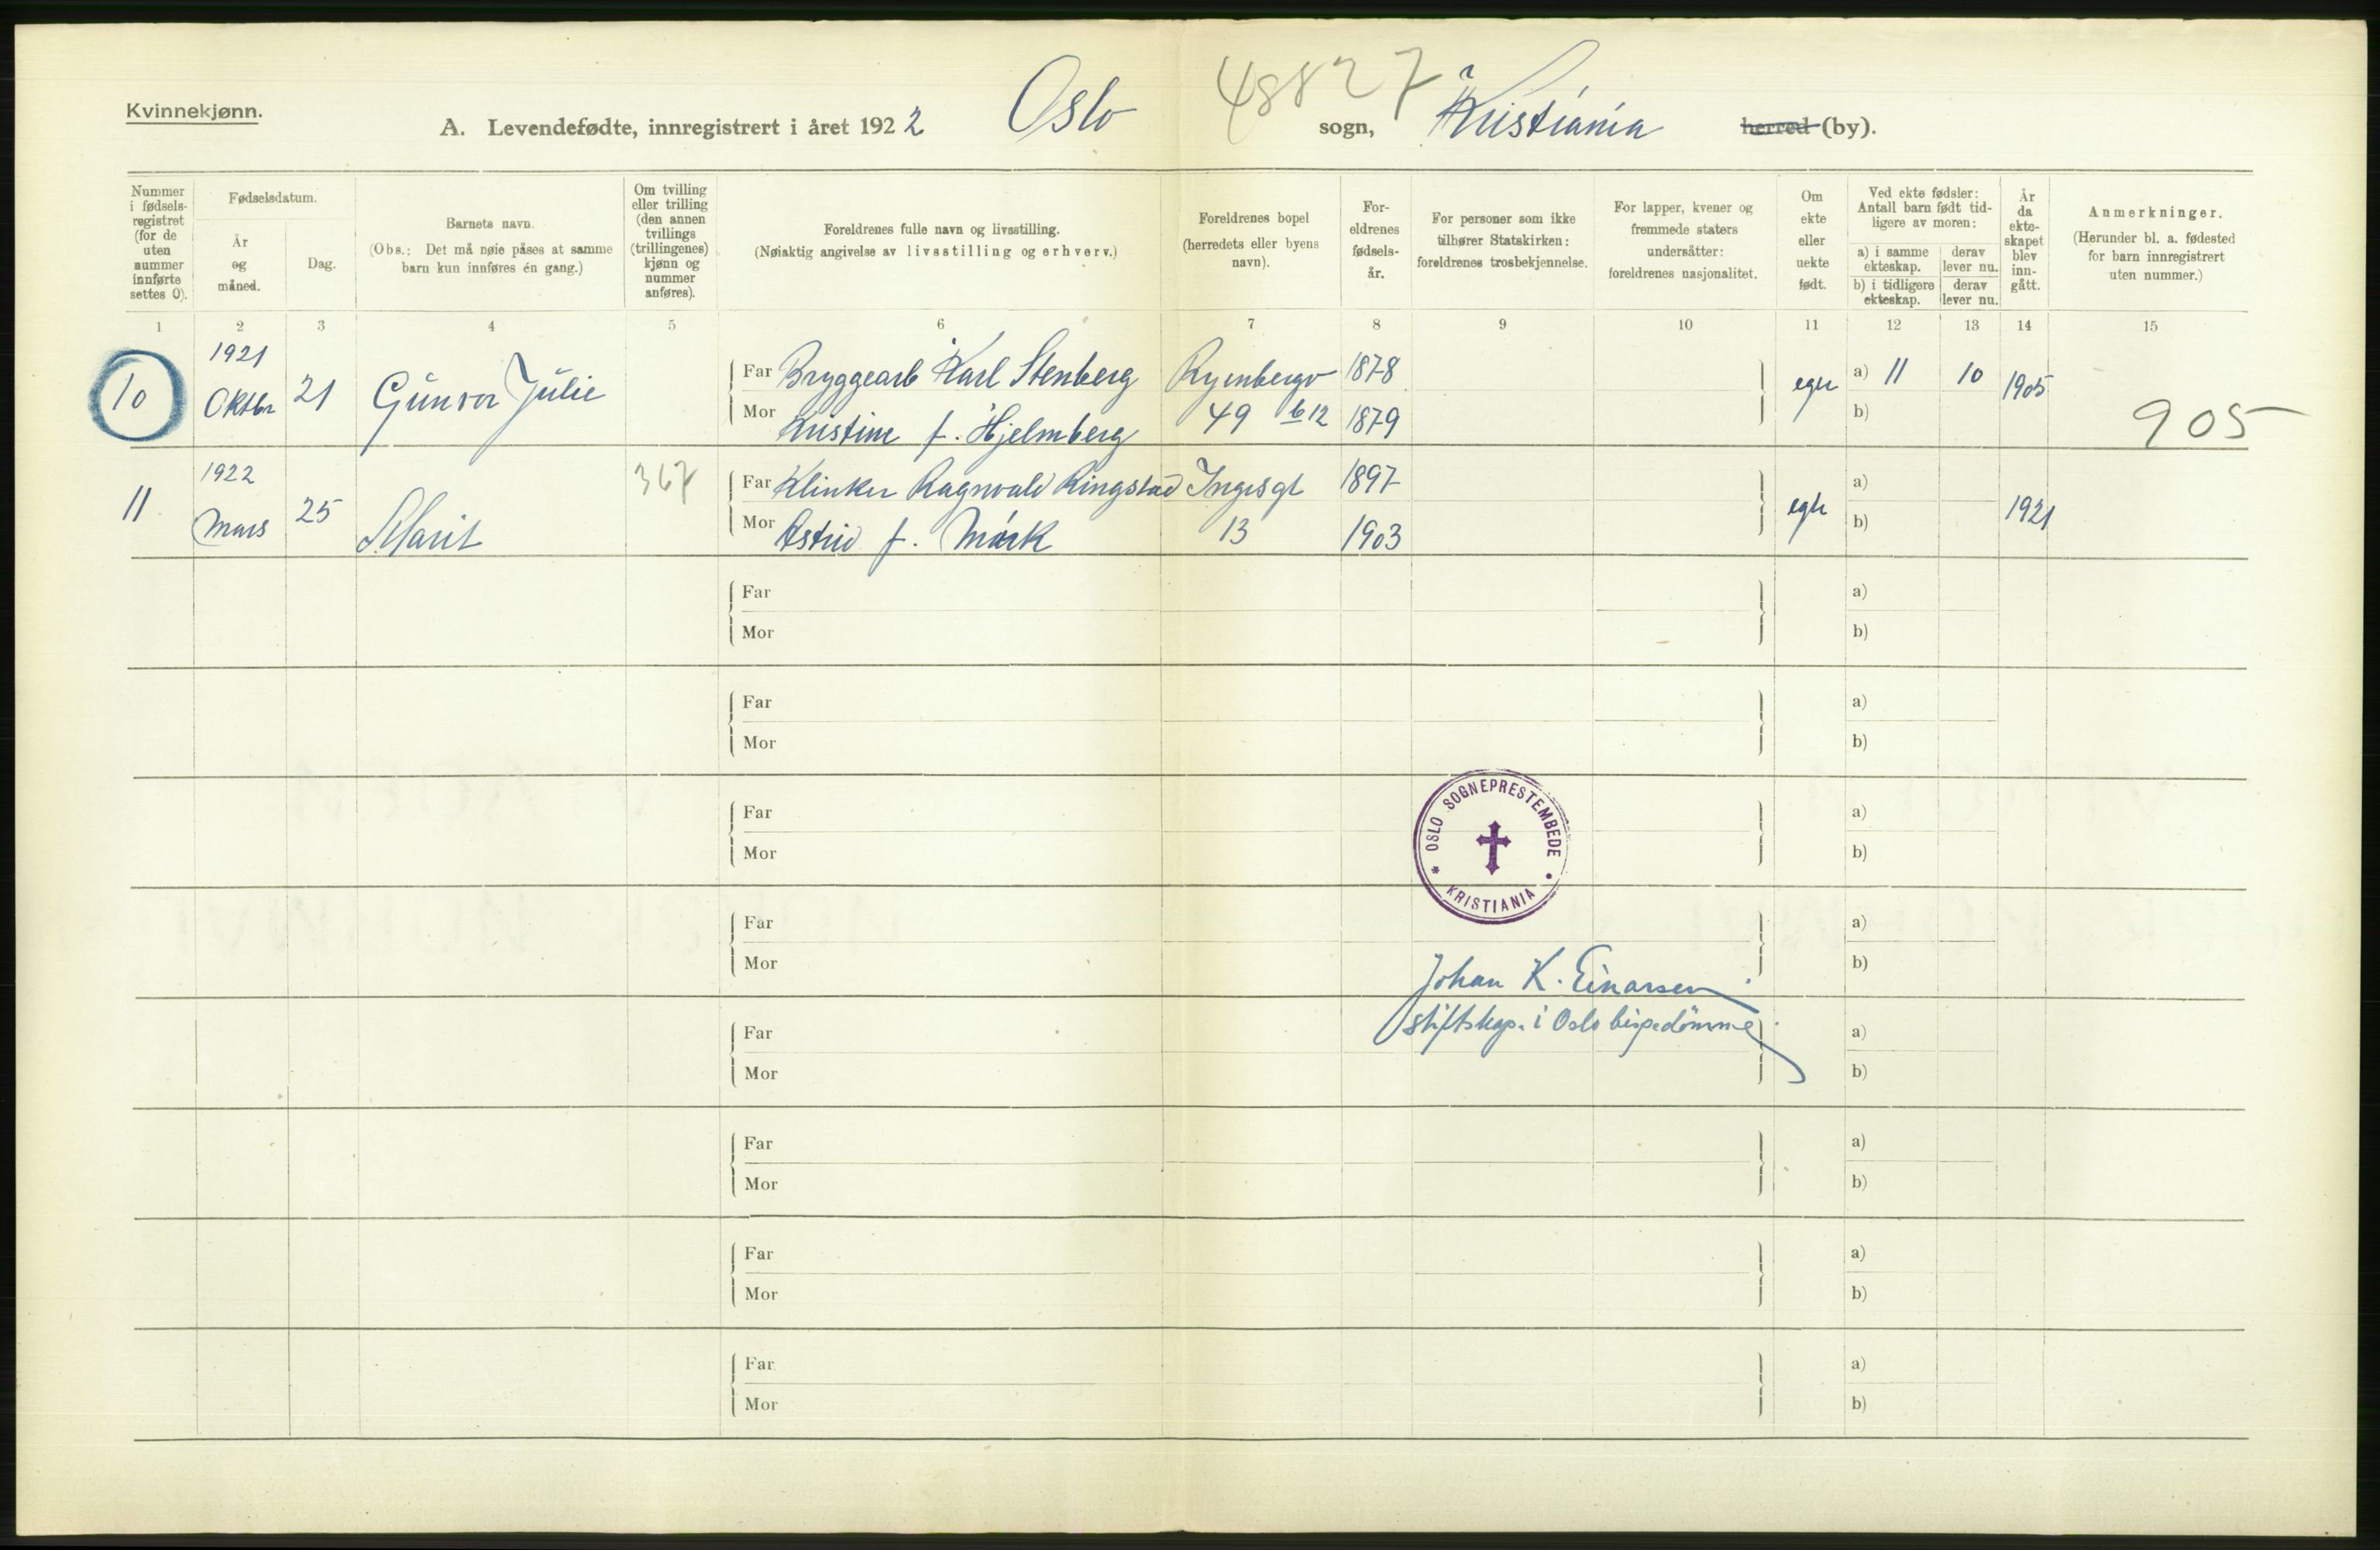 48827
Kvinnekjønn.
A. Levendefødte, innregistrert i året 1922 Oslo sogn, Kristiania herred (by).
Nummer i fødselsregistret (for de uten nummer innførte settes 0).
Fødselsdatum.
År og måned.
Dag.
Barnets navn.
(Obs.: Det må nøie påses at samme barn kun innføres én gang.)
Om tvilling eller trilling (den annen tvillings (trillingenes) kjønn og nummer anføres).
Foreldrenes fulle navn og livsstilling.
(Nøiaktig angivelse av livsstilling og erhverv.)
Foreldrenes bopel (herredets eller byens navn).
Foreldrenes fødselsår.
For personer som ikke tilhører Statskirken: foreldrenes trosbekjennelse.
For lapper, kvener og fremmede staters undersåtter: foreldrenes nasjonalitet.
Om ekte eller uekte født.
Ved ekte fødsler: Antall barn født tidligere av moren:
a) i samme ekteskap. derav lever nu.
b) i tidligere ekteskap. derav lever nu.
År da ekteskapet blev inngått.
Anmerkninger.
(Herunder bl. a. fødested for barn innregistrert uten nummer.)
1 2 3 4 5 6 7 8 9 10 11 12 13 14 15
10 1921 Oktbr 21 Gunvor Julie
Far Bryggearb Karl Stenberg Ryenbergv 1878 egte a) 11 10 1905
Mor Kristine f. Hjelmberg 49 b12 1879 b) 905
11 1922 Mars 25 Marit 367
Far Klinker Ragnvald Ringstad Ingesgt 1897 egte a) 1921
Mor Astrid f. Mørk 13 1903 b)
Far a)
Mor b)
Far a)
Mor b)
Far a)
Mor b)
OSLO SOGNEPRESTEMBEDE
* KRISTIANIA •
Far a)
Mor b)
Johan K. Einarsen
stiftskap. i Oslo bispedømme.
Far a)
Mor b)
Far a)
Mor b)
Far a)
Mor b)
Far a)
Mor b)